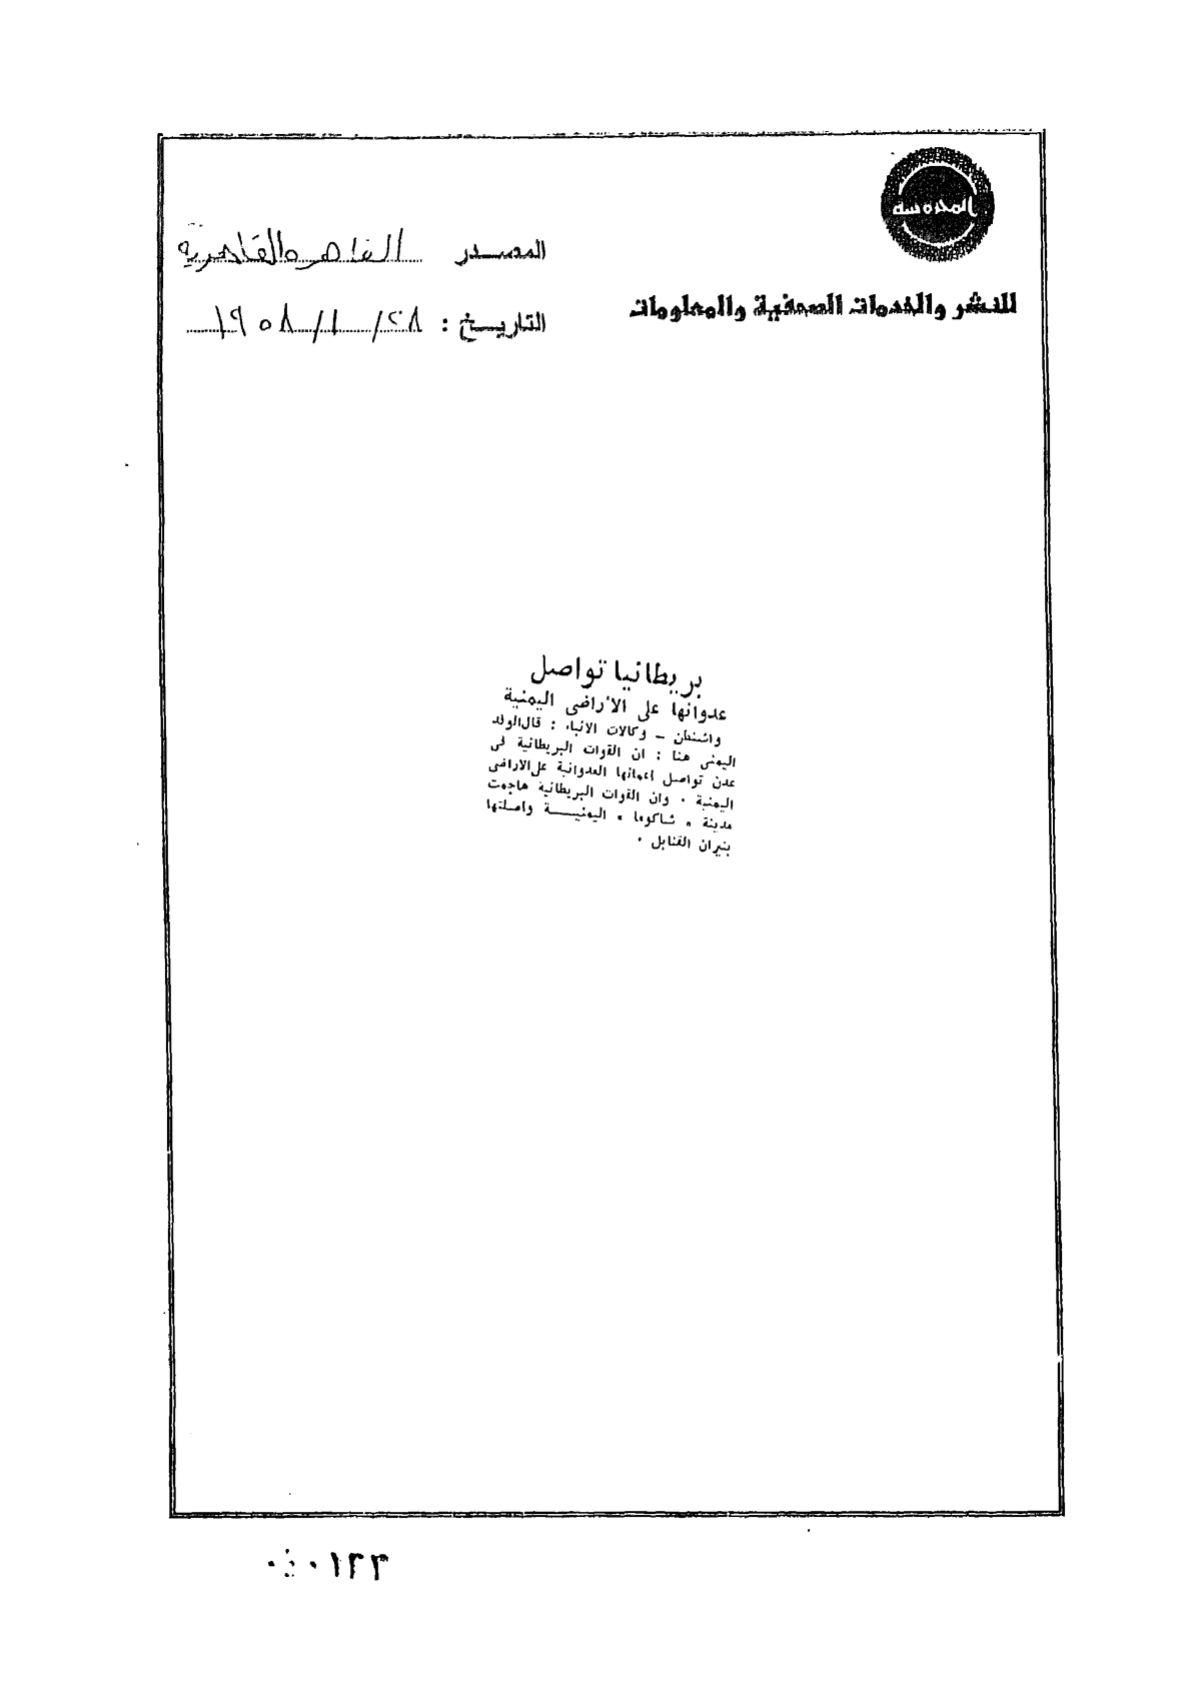 المحروسة
للنشر والخدمات الصحفية والمعلومات
المصدر القاهرة القاهرية
التاريخ : ٢٨ / ١ / ١٩٥٨
بريطانيا تواصل
عدوانها على الأراضى اليمنية
واشنطن – وكالات الانباء : قال الوفد
اليمنى هنا : ان القوات البريطانية فى
عدن تواصل اعمالها العدوانية على الاراضى
اليمنية . وان القوات البريطانية هاجمت
مدينة « شاكوما » اليمنيــــة واصلتها
بنيران القنابل .